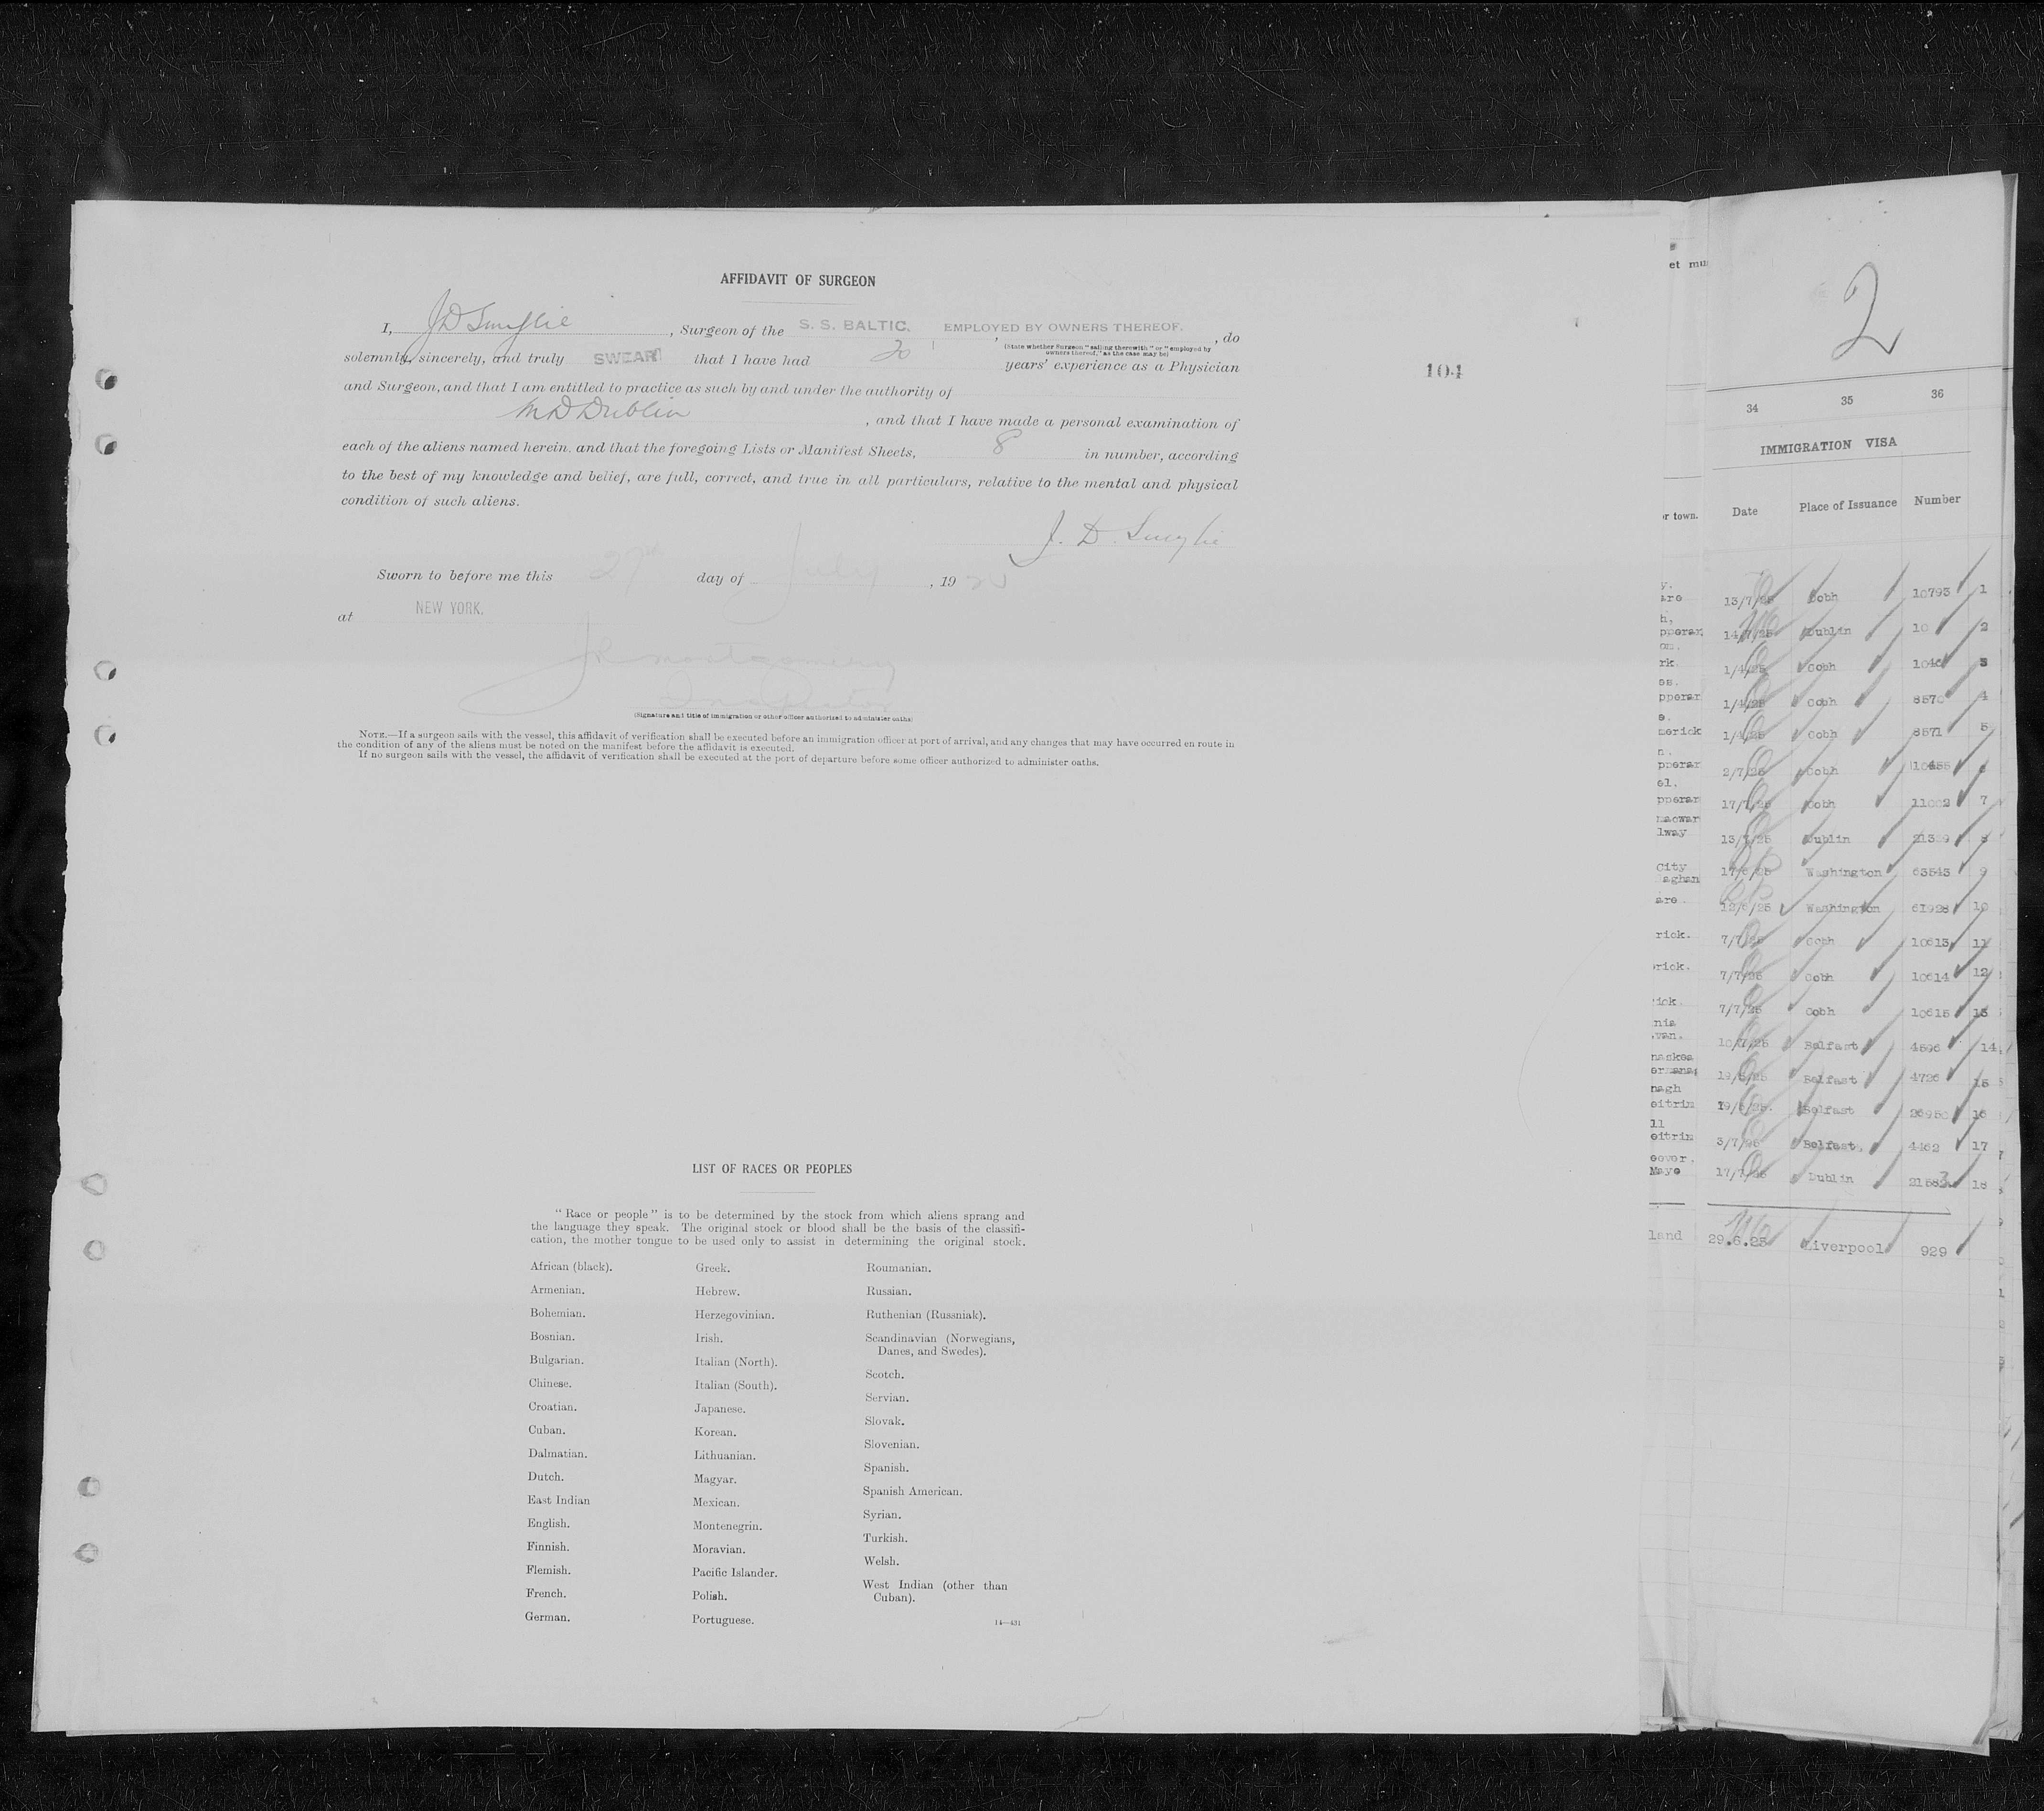 AFFIDAVIT OF SURGEON
I, J D Smylie, Surgeon of the S. S. BALTIC. EMPLOYED BY OWNERS THEREOF. , do
(State whether Surgeon "sailing therewith" or "employed by
owners thereof," as the case may be)
solemnly, sincerely, and truly SWEAR that I have had 20 years' experience as a Physician
and Surgeon, and that I am entitled to practice as such by and under the authority of
M D Dublin , and that I have made a personal examination of
each of the aliens named herein. and that the foregoing Lists or Manifest Sheets, 8 in number, according
to the best of my knowledge and belief, are full, correct, and true in all particulars, relative to the mental and physical
condition of such aliens.
J. D. Smylie
Sworn to before me this 27th day of July , 19
at NEW YORK.
J R Montgomery
Inspector
(Signature and title of immigration or other officer authorized to administer oaths)
NOTE.—If a surgeon sails with the vessel, this affidavit of verification shall be executed before an immigration officer at port of arrival, and any changes that may have occurred en route in
the condition of any of the aliens must be noted on the manifest before the affidavit is executed.
If no surgeon sails with the vessel, the affidavit of verification shall be executed at the port of departure before some officer authorized to administer oaths.
104
LIST OF RACES OR PEOPLES
"Race or people" is to be determined by the stock from which aliens sprang and
the language they speak. The original stock or blood shall be the basis of the classifi-
cation, the mother tongue to be used only to assist in determining the original stock.
African (black).
Armenian.
Bohemian.
Bosnian.
Bulgarian.
Chinese.
Croatian.
Cuban.
Dalmatian.
Dutch.
East Indian
English.
Finnish.
Flemish.
French.
German.
Greek.
Hebrew.
Herzegovinian.
Irish.
Italian (North).
Italian (South).
Japanese.
Korean.
Lithuanian.
Magyar.
Mexican.
Montenegrin.
Moravian.
Pacific Islander.
Polish.
Portuguese.
Roumanian.
Russian.
Ruthenian (Russniak).
Scandinavian (Norwegians,
Danes, and Swedes).
Scotch.
Servian.
Slovak.
Slovenian.
Spanish.
Spanish American.
Syrian.
Turkish.
Welsh.
West Indian (other than
Cuban).
14—431
2
34 35 36
IMMIGRATION VISA
or town. Date Place of Issuance Number
13/7/25 Cobh 10793 1
14/7/25 Dublin 2
1/4/25 Cobh 3
1/4/25 Cobh 8570 4
1/4/25 Cobh 8571 5
2/7/25 Cobh 10455 6
17/7/25 Cobh 11002 7
13/7/25 Dublin 8
17/6/25 Washington 63543 9
12/6/25 Washington 61928 10
7/7/25 Cobh 10613 11
7/7/25 Cobh 10614 12
7/7/25 Cobh 10615 13
10/7/25 Belfast 4596 14
19/6/25 Belfast 4726 15
19/6/25. Belfast 16
3/7/25 Belfast. 4462 17
17/7/25 Dublin 18
29.6.25 Liverpool 929